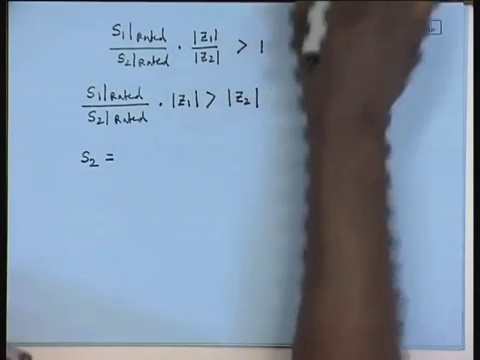 S₁|Rated / S₂|Rated · |Z₁| / |Z₂| > 1
S₁|Rated / S₂|Rated · |Z₁| > |Z₂|
S₂ =